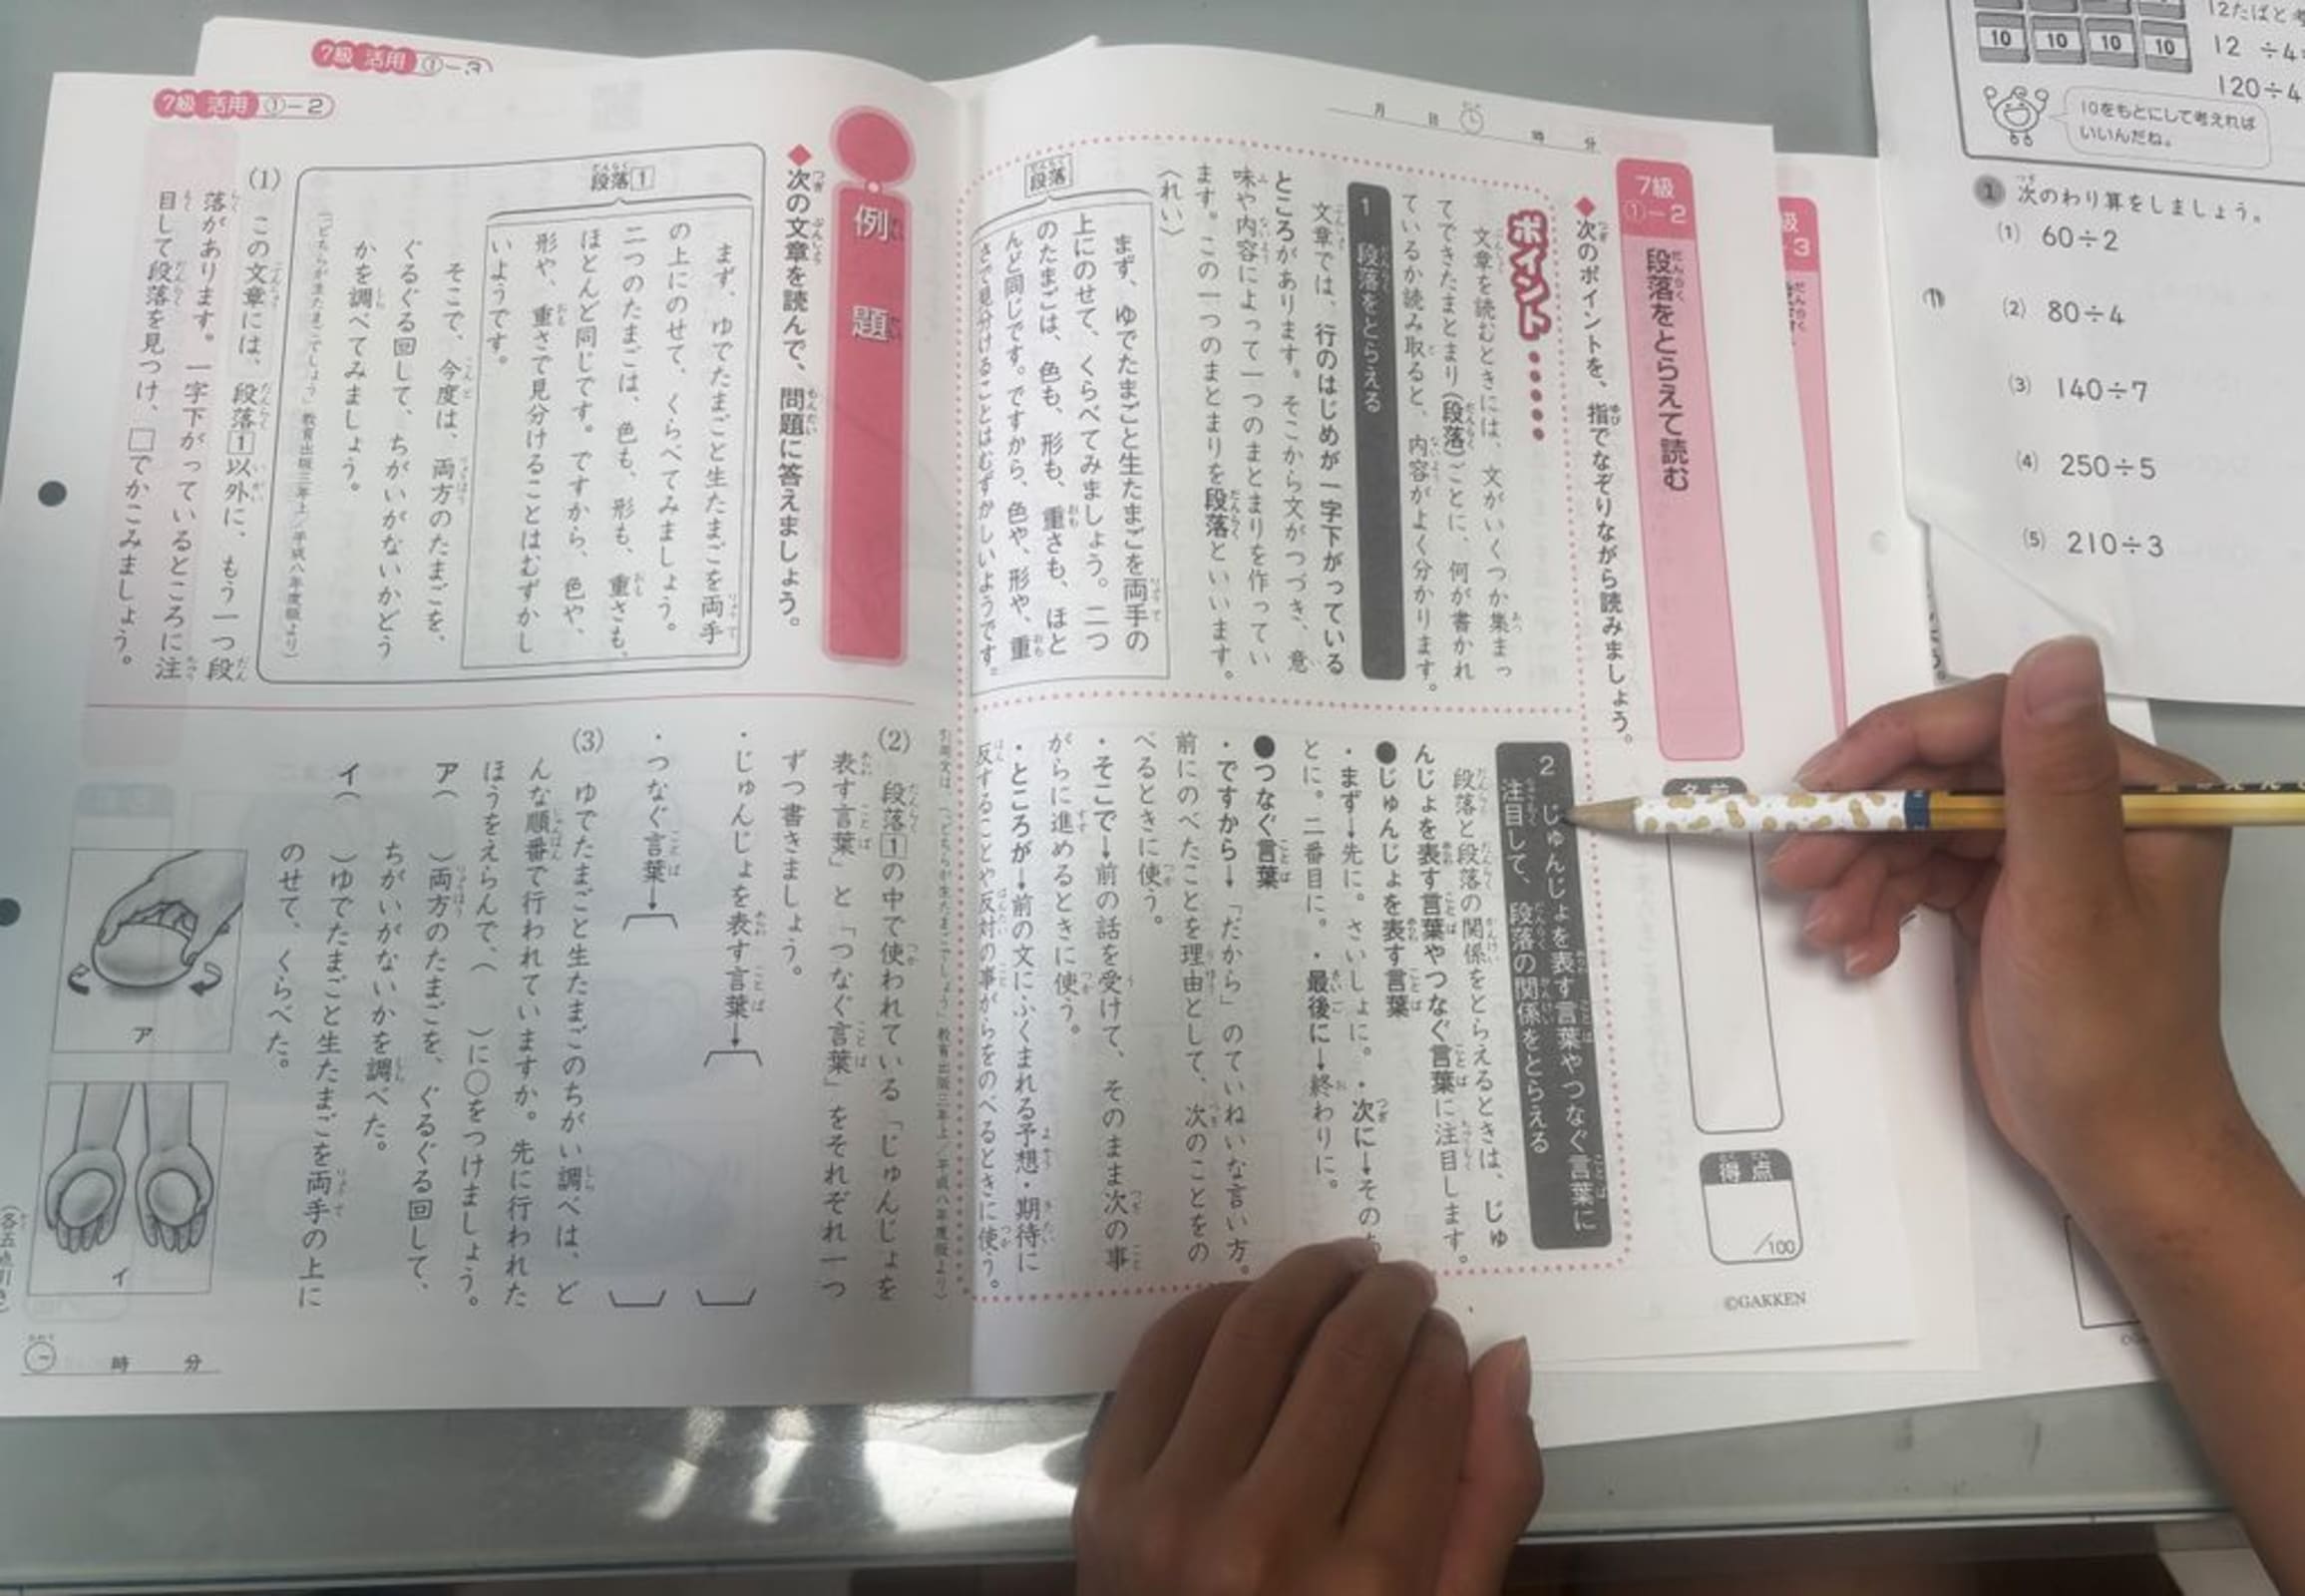 7級
①-2
段落をとらえて読む
◆次のポイントを、指でなぞりながら読みましょう。
ポイント
文章を読むときには、文がいくつか集まっ
てできたまとまり(段落)ごとに、何が書かれ
ているか読み取ると、内容がよく分かります。
1 段落をとらえる
文章では、行のはじめが一字下がっている
ところがあります。そこから文がつづき、意
味や内容によって一つのまとまりを作ってい
ます。この一つのまとまりを段落といいます。
〈れい〉
段落
まず、ゆでたまごと生たまごを両手の
上にのせて、くらべてみましょう。二つ
のたまごは、色も、形も、重さも、ほと
んど同じです。ですから、色や、形や、重
さで見分けることはむずかしいようです。
2 じゅんじょを表す言葉やつなぐ言葉に
注目して、段落の関係をとらえる
段落と段落の関係をとらえるときは、じゅ
んじょを表す言葉やつなぐ言葉に注目します。
●じゅんじょを表す言葉
・まず→先に。さいしょに。・次に→その
とに。二番目に。・最後に→終わりに。
●つなぐ言葉
・ですから→「だから」のていねいな言い方。
前にのべたことを理由として、次のことをの
べるときに使う。
・そこで→前の話を受けて、そのまま次の事
がらに進めるときに使う。
・ところが→前の文にふくまれる予想・期待に
反することや反対の事がらをのべるときに使う。
引用文は、「どちらが生たまごでしょう」教育出版三年上/平成八年度版より)
月 日 時 分
得点
/100
©GAKKEN
7級 活用 ①-3
7級 活用 ①-2
例題
◆次の文章を読んで、問題に答えましょう。
段落1
まず、ゆでたまごと生たまごを両手
の上にのせて、くらべてみましょう。
二つのたまごは、色も、形も、重さも、
ほとんど同じです。ですから、色や、
形や、重さで見分けることはむずかし
いようです。
そこで、今度は、両方のたまごを、
ぐるぐる回して、ちがいがないかどう
かを調べてみましょう。
(「どちらが生たまごでしょう」教育出版三年上/平成八年度版より)
(1) この文章には、段落1以外に、もう一つ段
落があります。一字下がっているところに注
目して段落を見つけ、□でかこみましょう。
(2) 段落1の中で使われている「じゅんじょを
表す言葉」と「つなぐ言葉」をそれぞれ一つ
ずつ書きましょう。
・じゅんじょを表す言葉→
・つなぐ言葉→
(3) ゆでたまごと生たまごのちがい調べは、ど
んな順番で行われていますか。先に行われた
ほうをえらんで、( )に○をつけましょう。
ア( )両方のたまごを、ぐるぐる回して、
ちがいがないかを調べた。
イ( )ゆでたまごと生たまごを両手の上に
のせて、くらべた。
ア
イ
時 分
級
3
10 10 10 10
12たばと考
12 ÷4
120÷4
10をもとにして考えれば
いいんだね。
1 次のわり算をしましょう。
(1) 60÷2
(2) 80÷4
(3) 140÷7
(4) 250÷5
(5) 210÷3